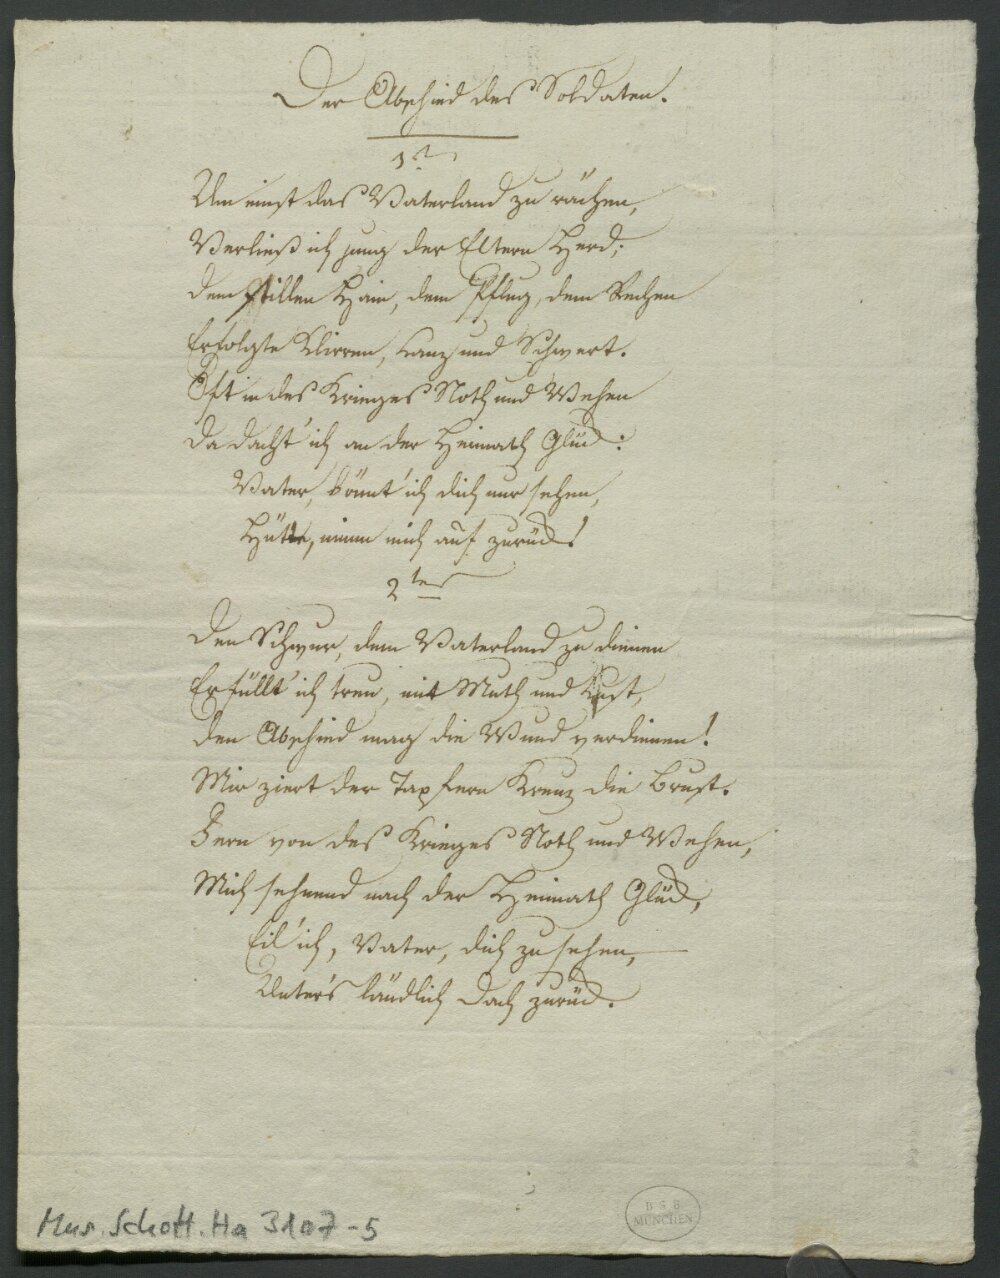 Der Abschied des Soldaten.
1.
Um einst das Vaterland zu rächen,
Verließ ich jung der Eltern Herd;
dem stillen Hain, dem Pflug, dem Rechen
Erfolgte Klirren, Lanz und Schwert.
Oft in des Krieges Noth und Wehen
da dacht' ich an der Heimath Glück:
Vater, könnt' ich dich nur sehen,
Hütte, nimm mich auf zurück!
2tes
den Schwur, dem Vaterland zu dienen
Erfüllt' ich treu, mit Muth und Lust,
den Abschied mag die Wund verdienen!
Mir ziert der Tapfern Kreuz die Brust.
Fern von des Krieges Noth und Wehen,
Mich sehnend nach der Heimath Glück,
Eil' ich, Vater, dich zu sehen,
Unter's ländlich Dach zurück.
Mus. Schott. Ha 3107-5
B S B
MÜNCHEN